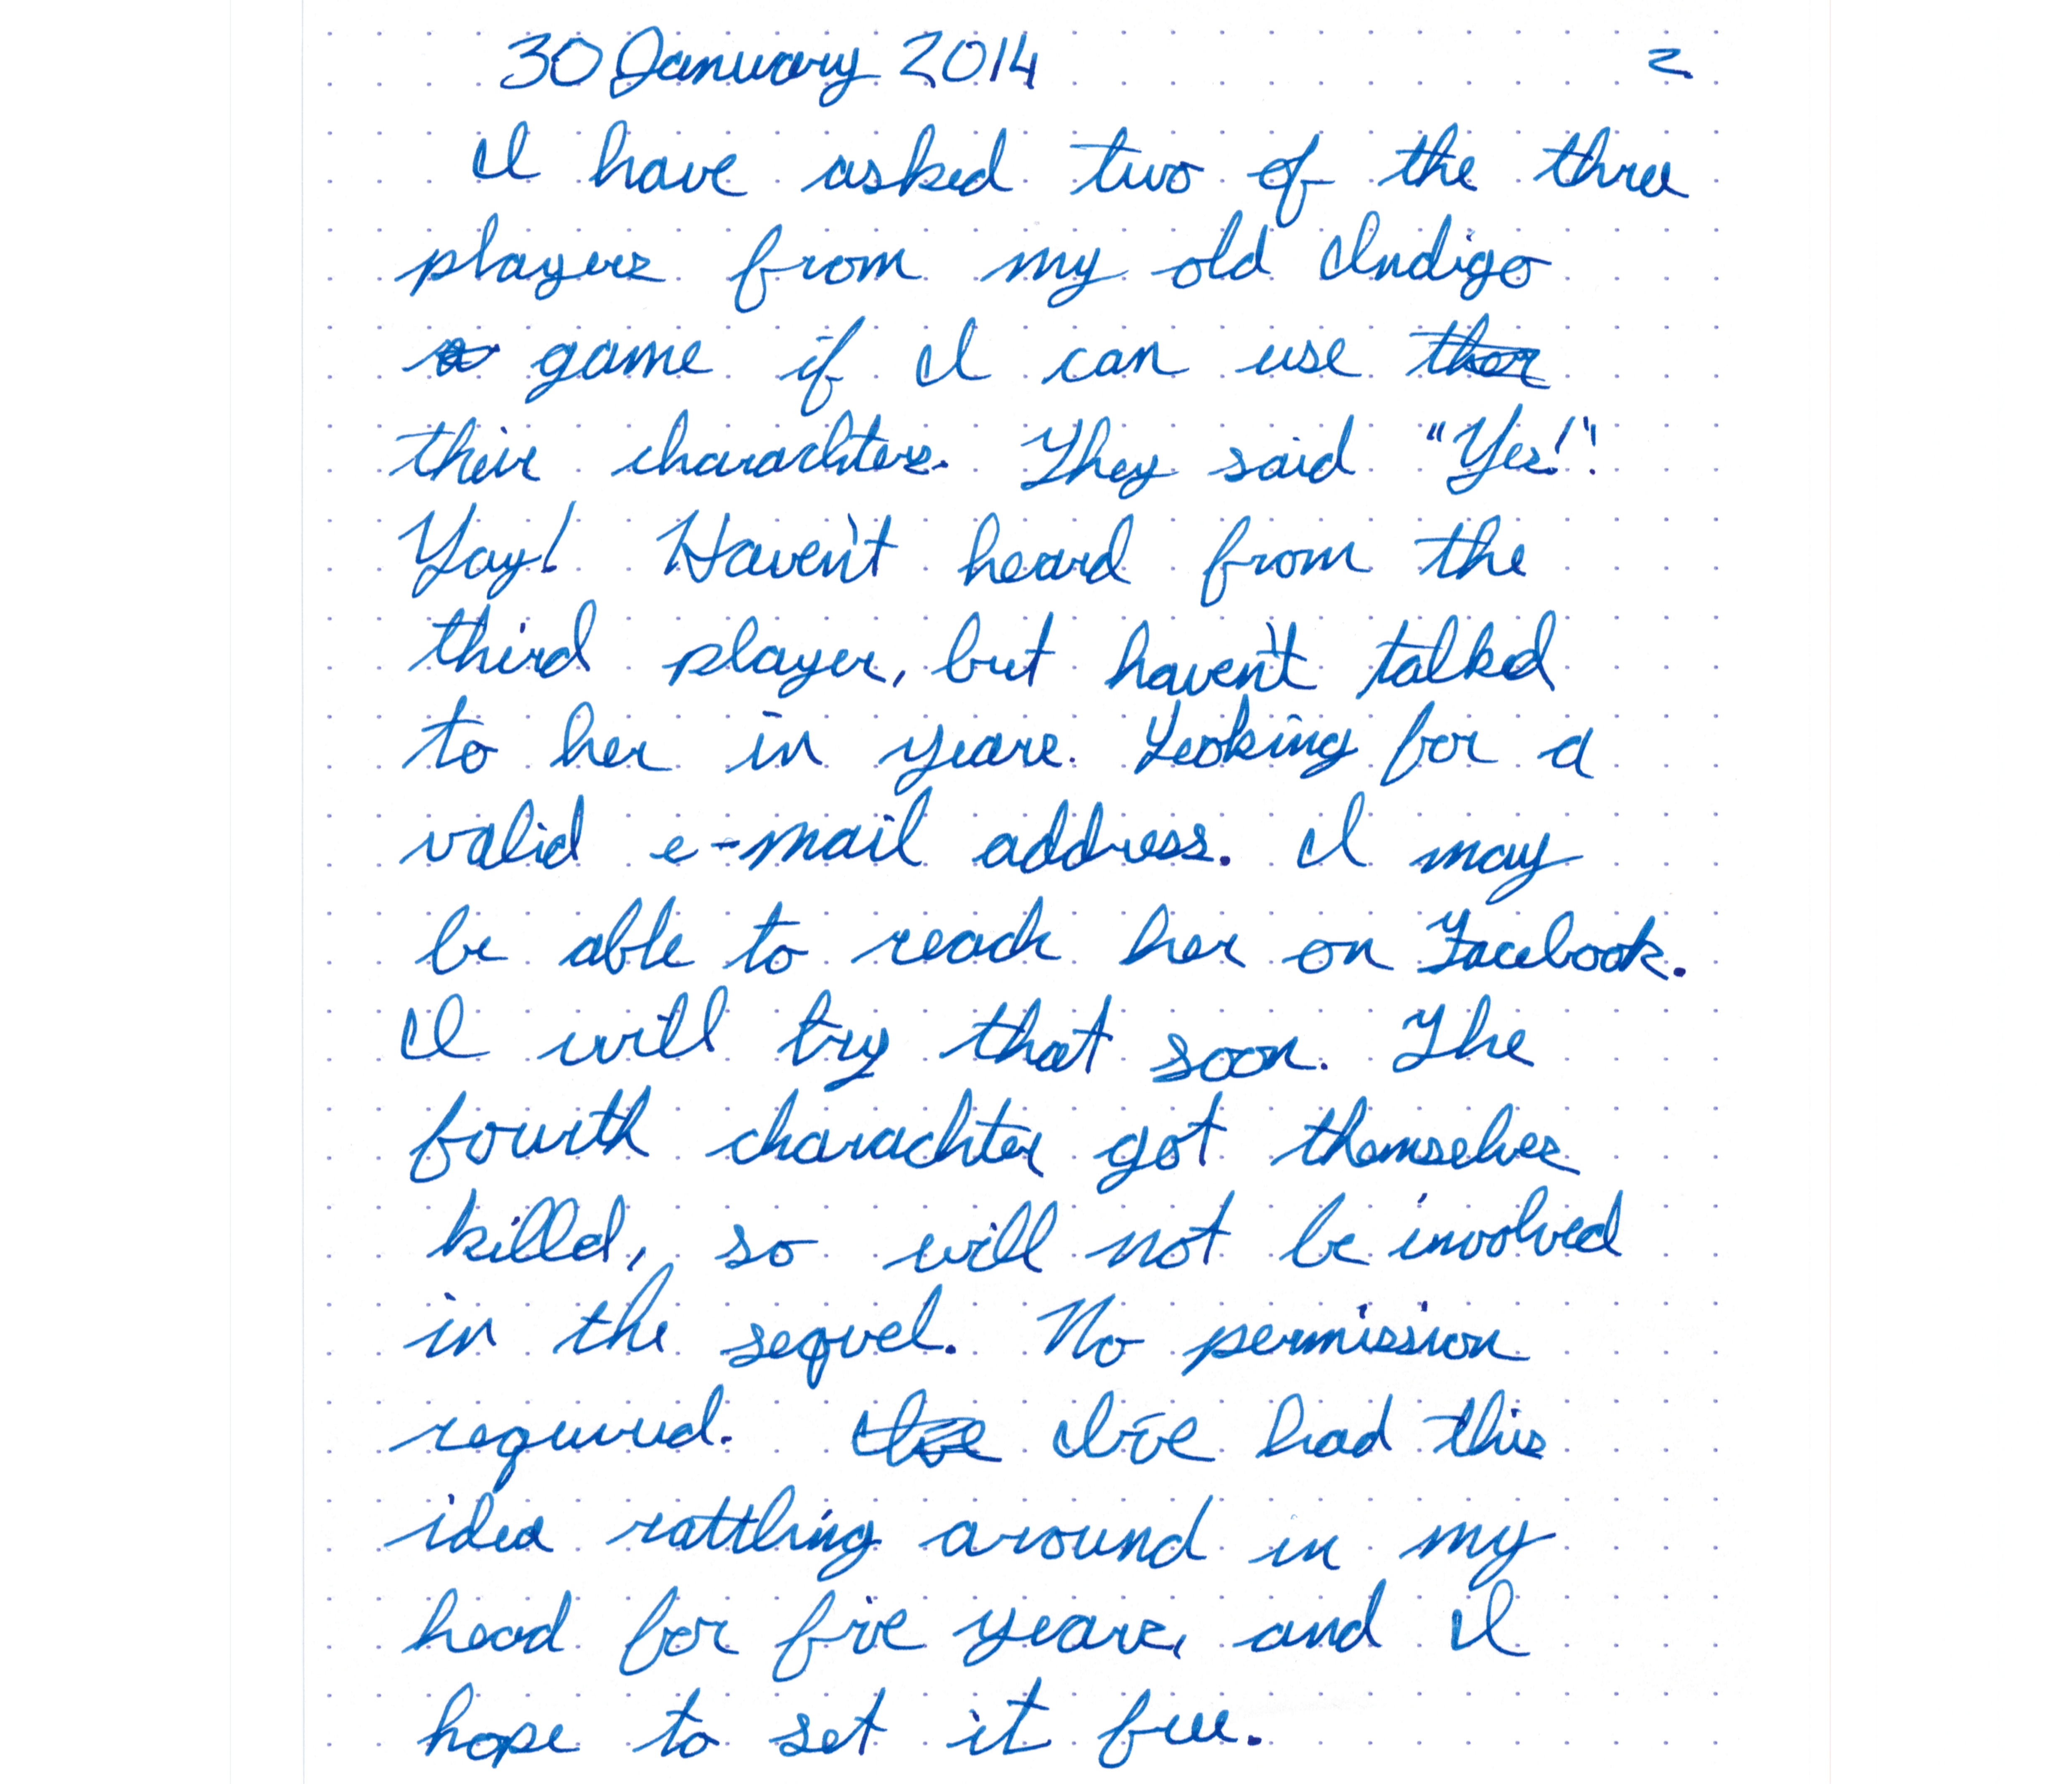 30 January 2014 2
I have asked two of the three
players from my old Indigo
game if I can use
their charachters. They said "Yes!".
Yay! Haven't heard from the
third player, but haven't talked
to her in years. Looking for a
valid e-mail address. I may
be able to reach her on Facebook.
I will try that soon. The
fourth charachter got themselves
killed, so will not be involved
in the sequel. No permission
required. I've had this
idea rattling around in my
head for five years, and I
hope to set it free.